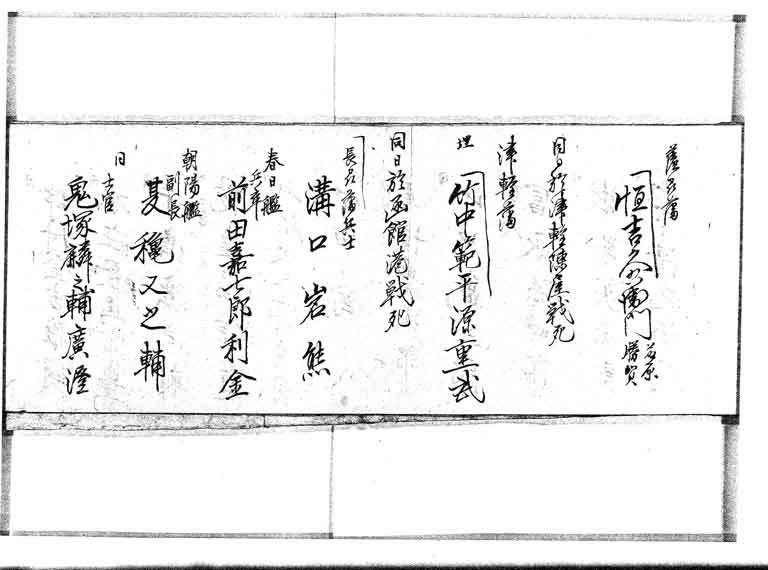 薩州藩
恒吉久右衛門 藤原勝賀
同日於津軽陣屋戦死
津軽藩
埋 竹中範平源重武
同日於函館港戦死
長名藩兵士
溝口岩熊
春日艦
前田嘉七郎利金
朝陽艦
副長
夏穐又之輔
同 士官
鬼塚麟之輔廣澄